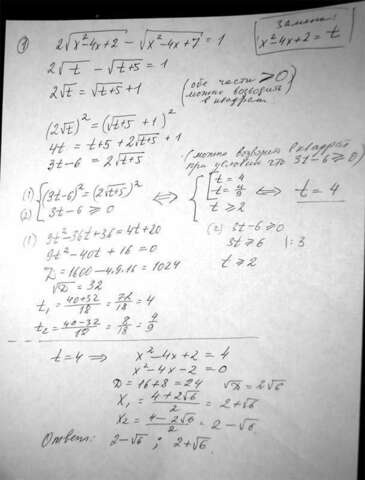 ① 2√(x²-4x+2) - √(x²-4x+7) = 1
Замена:
x²-4x+2 = t
2√t - √(t+5) = 1
2√t = √(t+5) + 1
(обе части ≥0
можно возводить
в квадрат)
(2√t)² = (√(t+5) + 1)²
4t = t+5 + 2√(t+5) + 1
3t-6 = 2√(t+5)
(можно возводить в квадрат
при условии что 3t-6≥0)
(1) { (3t-6)² = (2√(t+5))² ⟺ { [ t = 4 ⟺ t = 4
(2) 3t-6 ≥ 0 t = 4/9
t ≥ 2
(1) 9t²-36t+36 = 4t+20
9t²-40t+16 = 0
D = 1600-4·9·16 = 1024
√D = 32
t₁ = (40+32)/18 = 72/18 = 4
t₂ = (40-32)/18 = 8/18 = 4/9
(2) 3t-6≥0
3t≥6 |:3
t≥2
t=4 ⟹ x²-4x+2 = 4
x²-4x-2 = 0
D = 16+8 = 24 √D = 2√6
x₁ = (4+2√6)/2 = 2+√6
x₂ = (4-2√6)/2 = 2-√6
Ответ: 2-√6 ; 2+√6.